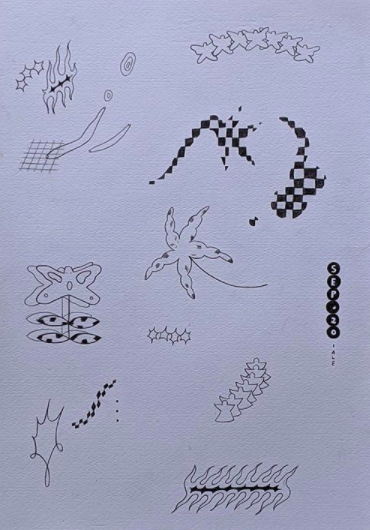 SEP.20
ALF